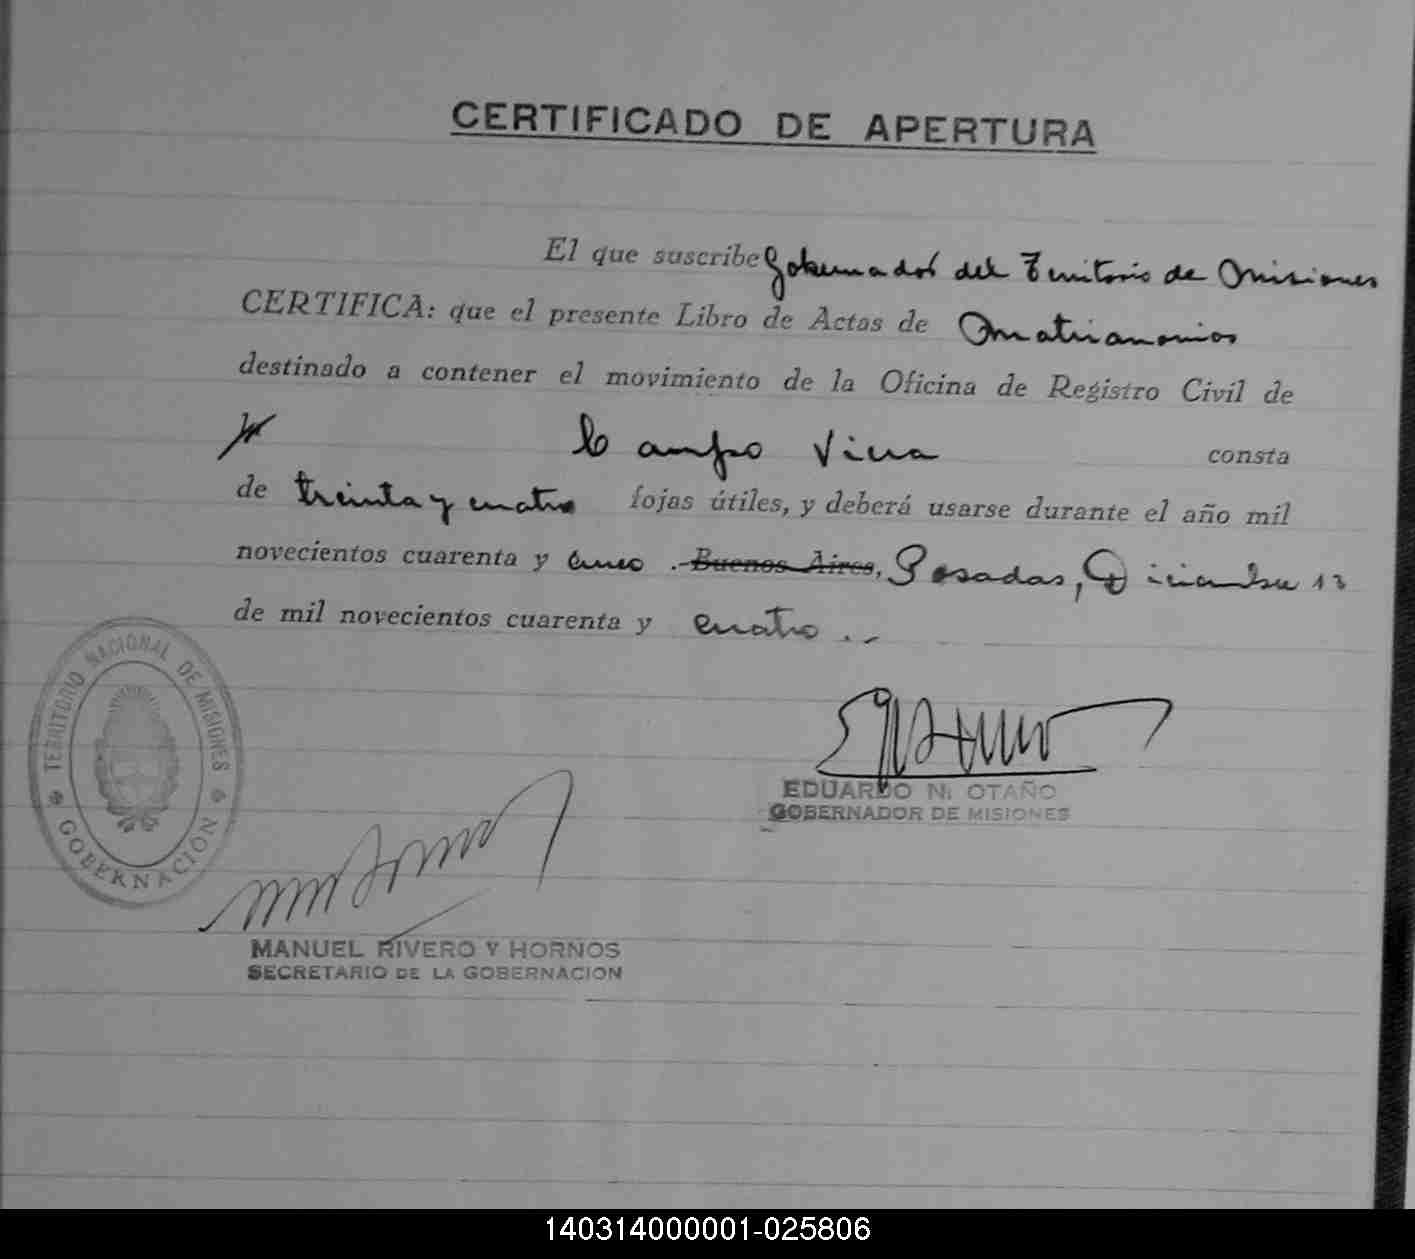 CERTIFICADO DE APERTURA
El que suscribe Gobernador del Territorio de Misiones
CERTIFICA: que el presente Libro de Actas de Matrimonios
destinado a contener el movimiento de la Oficina de Registro Civil de
Campo Viera consta
de treinta y cuatro fojas útiles, y deberá usarse durante el año mil
novecientos cuarenta y cinco . Buenos Aires, Posadas, Diciembre 13
de mil novecientos cuarenta y cuatro . -
TERRITORIO NACIONAL DE MISIONES
GOBERNACIÓN
EDUARDO N. OTAÑO
GOBERNADOR DE MISIONES
MANUEL RIVERO Y HORNOS
SECRETARIO DE LA GOBERNACION
140314000001-025806